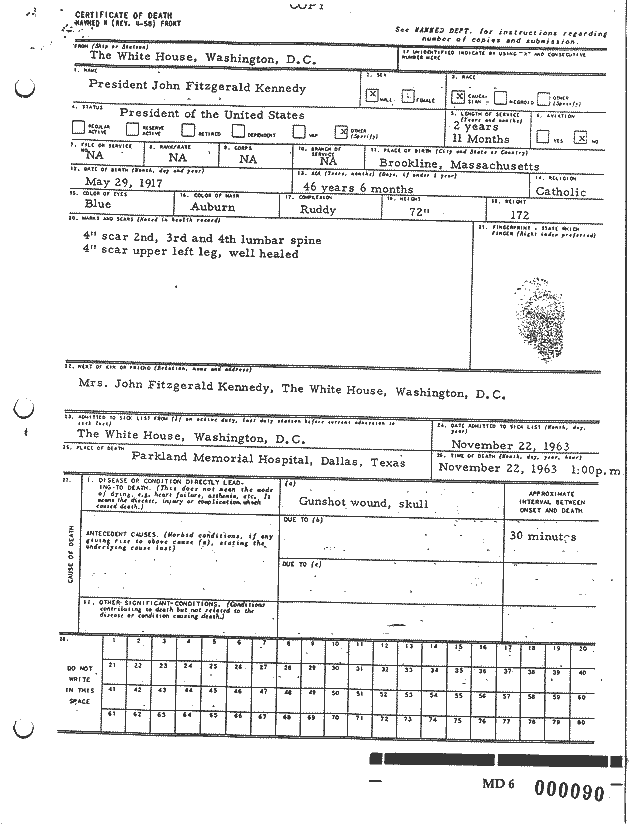 COPY
CERTIFICATE OF DEATH
NAVMED N (REV. 4-58) FRONT
See MANMED DEPT. for instructions regarding
number of copies and submission.
FROM (Ship or Station)
The White House, Washington, D.C.
IF UNIDENTIFIED INDICATE BY USING "X" AND CONSECUTIVE
NUMBER HERE
1. NAME
President John Fitzgerald Kennedy
2. SEX
X MALE FEMALE
3. RACE
X CAUCA-
SIAN NEGROID OTHER
(Specify)
4. STATUS
President of the United States
REGULAR
ACTIVE
RESERVE
ACTIVE
RETIRED
DEPENDENT
VAP
X OTHER
(Specify)
5. LENGTH OF SERVICE
(Years and months)
2 years
11 Months
6. AVIATION
YES X NO
7. FILE OR SERVICE
NO.
NA
8. RANK/RATE
NA
9. CORPS
NA
10. BRANCH OF
SERVICE
NA
11. PLACE OF BIRTH (City and State or Country)
Brookline, Massachusetts
12. DATE OF BIRTH (Month, day and year)
May 29, 1917
13. AGE (Years, months) (Days, if under 1 year)
46 years 6 months
14. RELIGION
Catholic
15. COLOR OF EYES
Blue
16. COLOR OF HAIR
Auburn
17. COMPLEXION
Ruddy
18. HEIGHT
72"
19. WEIGHT
172
20. MARKS AND SCARS (Noted in health record)
4" scar 2nd, 3rd and 4th lumbar spine
4" scar upper left leg, well healed
21. FINGERPRINT - STATE WHICH
FINGER (Right index preferred)
22. NEXT OF KIN OR FRIEND (Relation, name and address)
Mrs. John Fitzgerald Kennedy, The White House, Washington, D.C.
23. ADMITTED TO SICK LIST FROM (If on active duty, last duty station before current admission to
sick list)
The White House, Washington, D.C.
24. DATE ADMITTED TO SICK LIST (Month, day,
year)
November 22, 1963
25. PLACE OF DEATH
Parkland Memorial Hospital, Dallas, Texas
26. TIME OF DEATH (Month, day, year, hour)
November 22, 1963 1:00p.m
27.
CAUSE OF DEATH
I. DISEASE OR CONDITION DIRECTLY LEAD-
ING TO DEATH. (This does not mean the mode
of dying, e.g. heart failure, asthenia, etc. It
means the disease, injury or complication which
caused death.)
(a)
Gunshot wound, skull
APPROXIMATE
INTERVAL BETWEEN
ONSET AND DEATH
ANTECEDENT CAUSES. (Morbid conditions, if any
giving rise to above cause (a), stating the
underlying cause last)
DUE TO (b)
30 minutes
DUE TO (c)
II. OTHER SIGNIFICANT CONDITIONS. (Conditions
contributing to death but not related to the
disease or condition causing death.)
28.
DO NOT
WRITE
IN THIS
SPACE
1 2 3 4 5 6 7 8 9 10 11 12 13 14 15 16 17 18 19 20
21 22 23 24 25 26 27 28 29 30 31 32 33 34 35 36 37 38 39 40
41 42 43 44 45 46 47 48 49 50 51 52 53 54 55 56 57 58 59 60
61 62 63 64 65 66 67 68 69 70 71 72 73 74 75 76 77 78 79 80
MD 6 000090